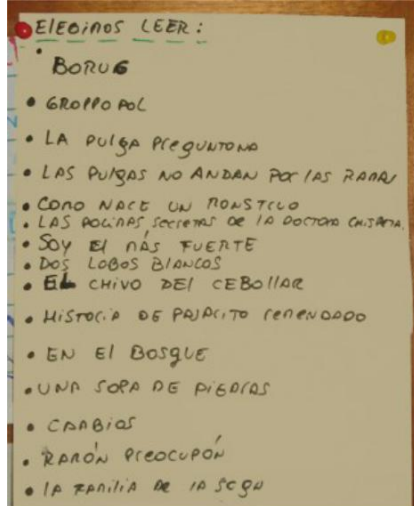 ELEGIMOS LEER:
• BORUG
• GROPPOPOL
• LA PULGA PREGUNTONA
• LAS PULGAS NO ANDAN POR LAS RAMAS
• COMO NACE UN MONSTRUO
• LAS POCIMAS SECRETAS DE LA DOCTORA CHISPETA.
• SOY EL MÁS FUERTE
• DOS LOBOS BLANCOS
• EL CHIVO DEL CEBOLLAR
• HISTORIA DE PAJARITO REMENDADO
• EN El BOSQUE
• UNA SOPA DE PIEDRAS
• CAMBIOS
• RAMÓN PREOCUPÓN
• LA FAMILIA DE LA